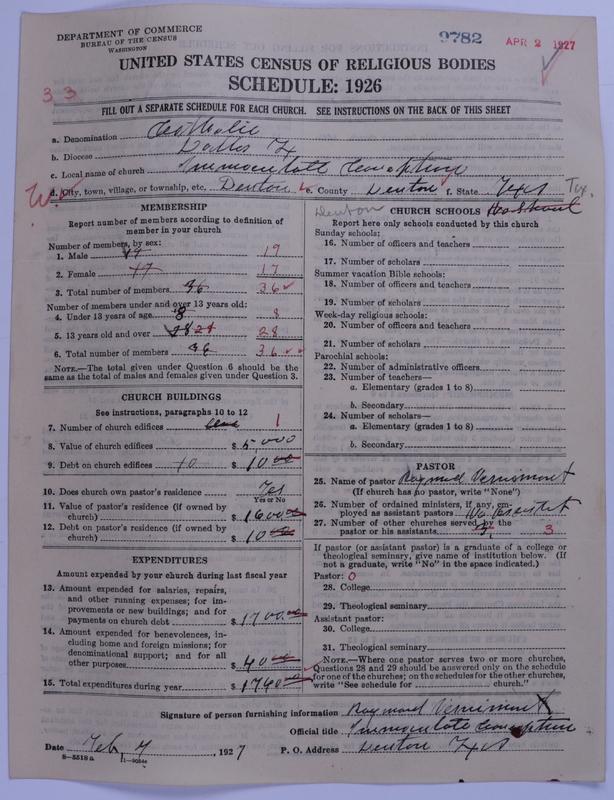 DEPARTMENT OF COMMERCE
BUREAU OF THE CENSUS
WASHINGTON
9782
APR 2 1927
UNITED STATES CENSUS OF RELIGIOUS BODIES
SCHEDULE: 1926
33
FILL OUT A SEPARATE SCHEDULE FOR EACH CHURCH. SEE INSTRUCTIONS ON THE BACK OF THIS SHEET
a. Denomination Catholic
b. Diocese Dallas Tx
c. Local name of church Immaculate Conception
d. City, town, village, or township, etc. Denton e. County Denton f. State Texas Tex.
MEMBERSHIP
Report number of members according to definition of
member in your church
Number of members, by sex:
1. Male 19
2. Female 17 17
3. Total number of members 36 36
Number of members under and over 13 years old:
4. Under 13 years of age 8 8
5. 13 years old and over 28 28 28
6. Total number of members 36 36
NOTE.—The total given under Question 6 should be the
same as the total of males and females given under Question 3.
CHURCH BUILDINGS
See instructions, paragraphs 10 to 12
7. Number of church edifices 1
8. Value of church edifices $5,000
9. Debt on church edifices $
10. Does church own pastor's residence Yes
Yes or No
11. Value of pastor's residence (if owned by
church) $1600.00
12. Debt on pastor's residence (if owned by
church) $
EXPENDITURES
Amount expended by your church during last fiscal year
13. Amount expended for salaries, repairs,
and other running expenses; for im-
provements or new buildings; and for
payments on church debt $1700.00
14. Amount expended for benevolences, in-
cluding home and foreign missions; for
denominational support; and for all
other purposes $40.00
15. Total expenditures during year $1740.00
Denton
CHURCH SCHOOLS No School
Report here only schools conducted by this church
Sunday schools:
16. Number of officers and teachers
17. Number of scholars
Summer vacation Bible schools:
18. Number of officers and teachers
19. Number of scholars
Week-day religious schools:
20. Number of officers and teachers
21. Number of scholars
Parochial schools:
22. Number of administrative officers
23. Number of teachers—
a. Elementary (grades 1 to 8)
b. Secondary
24. Number of scholars—
a. Elementary (grades 1 to 8)
b. Secondary
PASTOR
25. Name of pastor Raymond Vernimont
(If church has no pastor, write "None")
26. Number of ordained ministers, if any, em-
ployed as assistant pastors No
27. Number of other churches served by the
pastor or his assistants 3 3
If pastor (or assistant pastor) is a graduate of a college or
theological seminary, give name of institution below. (If
not a graduate, write "No" in the space indicated.)
Pastor: 0
28. College
29. Theological seminary
Assistant pastor:
30. College
31. Theological seminary
NOTE.—Where one pastor serves two or more churches,
Questions 28 and 29 should be answered only on the schedule
for one of the churches; on the schedules for the other churches,
write "See schedule for church."
Signature of person furnishing information Raymond Vernimont
Official title Immaculate Conception
Date Feb 7, 1927 P. O. Address Denton Texas
8—5518a